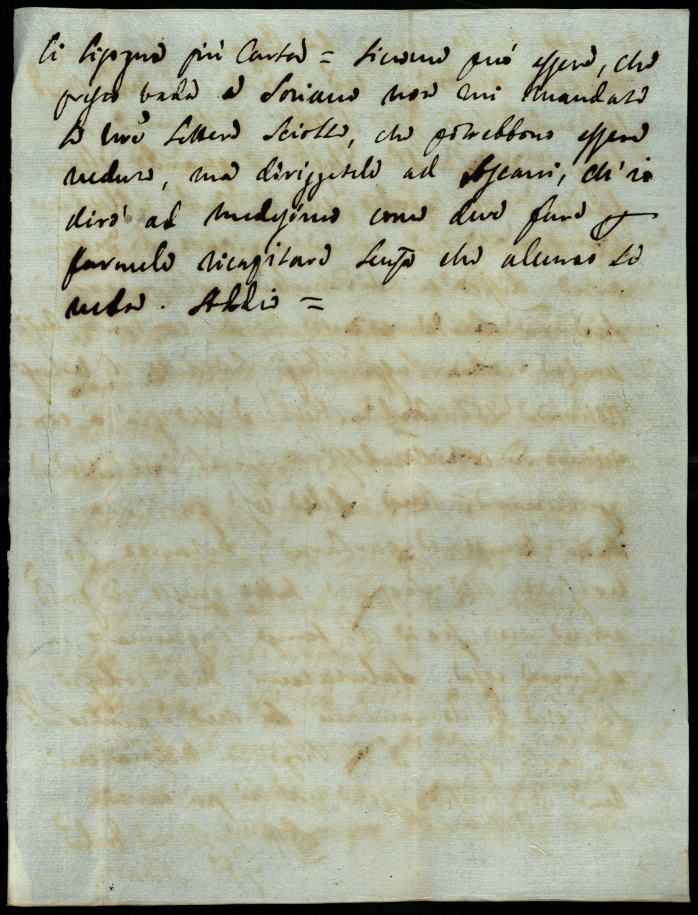 ci bisogna più Carta = Siccome può essere, che
presto vada a Soriano non mi mandate
le vrê lettere sciolte, che potrebbono essere
vedute, ma diriggetele ad Ascani, ch'io
dirò al medesimo come deve fare p
farmele ricapitare senza che alcuno le
veda. Addio =